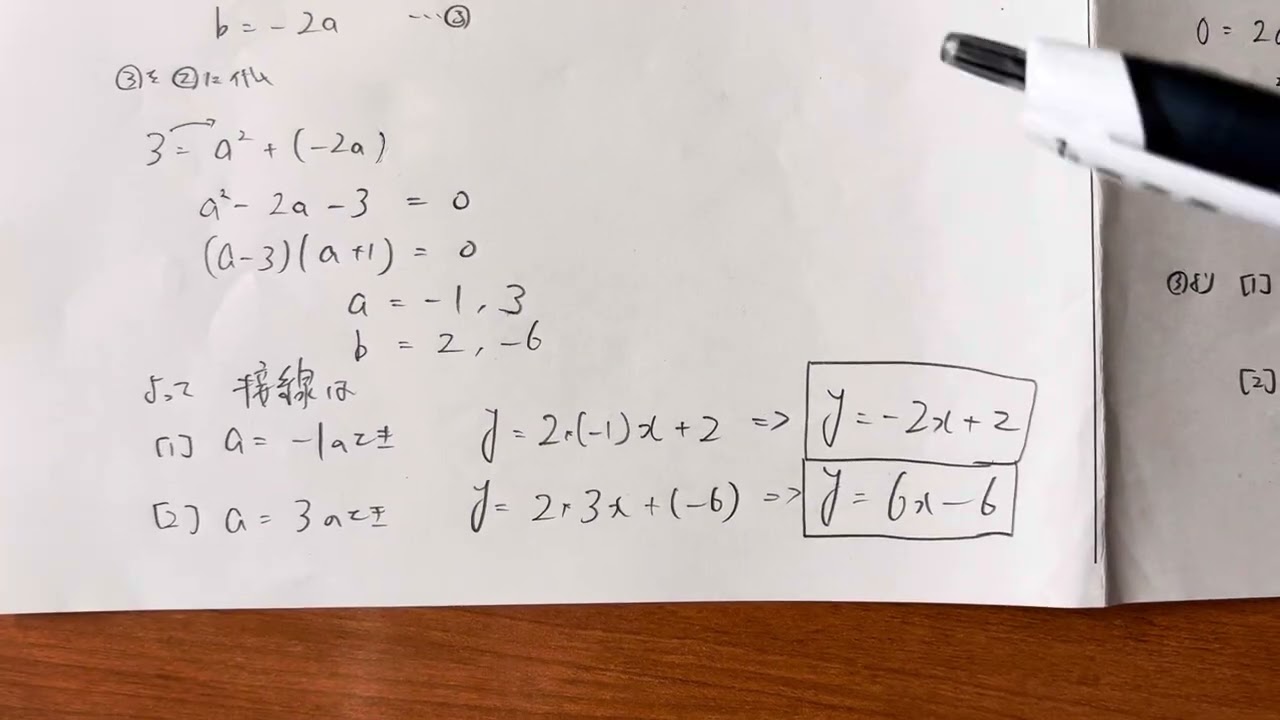 b = -2a …③
③を②に代入
3 = a² + (-2a)
a² - 2a - 3 = 0
(a-3)(a+1) = 0
a = -1, 3
b = 2, -6
よって 接線は
[1] a = -1のとき y = 2・(-1)x + 2 => y = -2x + 2
[2] a = 3のとき y = 2・3x + (-6) => y = 6x - 6
0 = 2
③より [1]
[2]